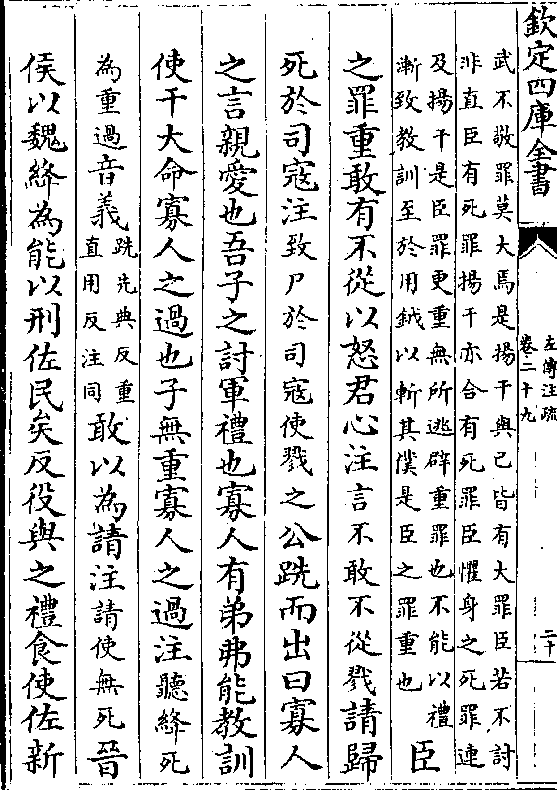 欽定四庫全書
左傳注疏
卷二十九
二十
武不敬罪莫大焉是揚干與己皆有大罪臣若不討
非直臣有死罪揚干亦合有死罪臣懼身之死罪連
及揚干是臣罪更重無所逃辟重罪也不能以禮
漸致教訓至於用鉞以斬其僕是臣之罪重也
臣
之罪重敢有不從以怒君心注言不敢不從戮請歸
死於司寇注致尸於司寇使戮之公跣而出曰寡人
之言親愛也吾子之討軍禮也寡人有弟弗能教訓
使干大命寡人之過也子無重寡人之過注聽絳死
為重過音義
跣先典反重
直用反注同
敢以為請注請使無死晉
侯以魏絳為能以刑佐民矣反役與之禮食使佐新